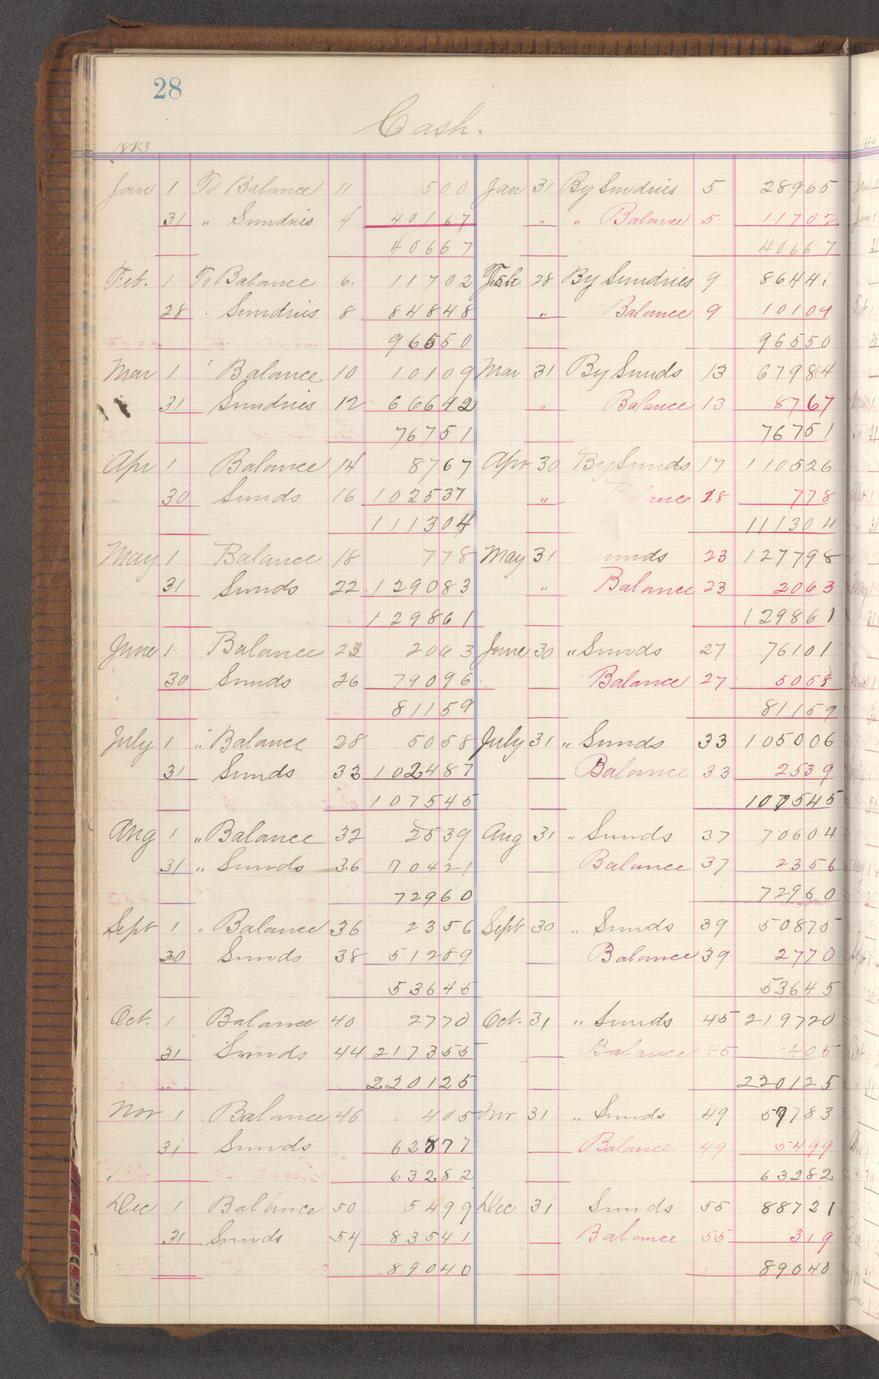 28
Cash.
1883
Jan 1 To Balance 11 500 Jan 31 By Sundries 5 28965
31 " Sundries 4 40167 " " Balance 5 11702
40667 40667
Feb. 1 To Balance 6. 11702 Feb 28 By Sundries 9 86441
28 . Sundries 8 84848 " Balance 9 10109
96550 96550
Mar 1 ' Balance 10 10109 Mar 31 By Sunds 13 67984
31 Sundries 12 66642 " Balance 13 8767
76751 76751
Apr 1 Balance 14 8767 Apr 30 By Sunds 17 110526
30 Sunds 16 102537 " Balance 18 778
111304 111304
May 1 Balance 18 778 May 31 unds 23 127798
31 Sunds 22 129083 " Balance 23 2063
129861 129861
June 1 Balance 23 2063 June 30 " Sunds 27 76101
30 Sunds 26 79096 Balance 27 5058
81159 81159
July 1 " Balance 28 5058 July 31 " Sunds 33 105006
31 Sunds 32 102487 Balance 33 2539
107545 107545
Aug 1 " Balance 32 2539 Aug 31 " Sunds 37 70604
31 " Sunds 36 70421 Balance 37 2356
72960 72960
Sept 1 " Balance 36 2356 Sept 30 " Sunds 39 50875
30 Sunds 38 51289 Balance 39 2770
53645 53645
Oct. 1 Balance 40 2770 Oct. 31 " Sunds 45 219720
31 Sunds 44 217355 Balance 45 405
220125 220125
Nov 1 Balance 46 405 Nov 31 " Sunds 49 57783
31 Sunds 62877 Balance 49 5499
63282 63282
Dec 1 Balance 50 5499 Dec 31 Sunds 55 88721
31 Sunds 54 83541 Balance 55 319
89040 89040